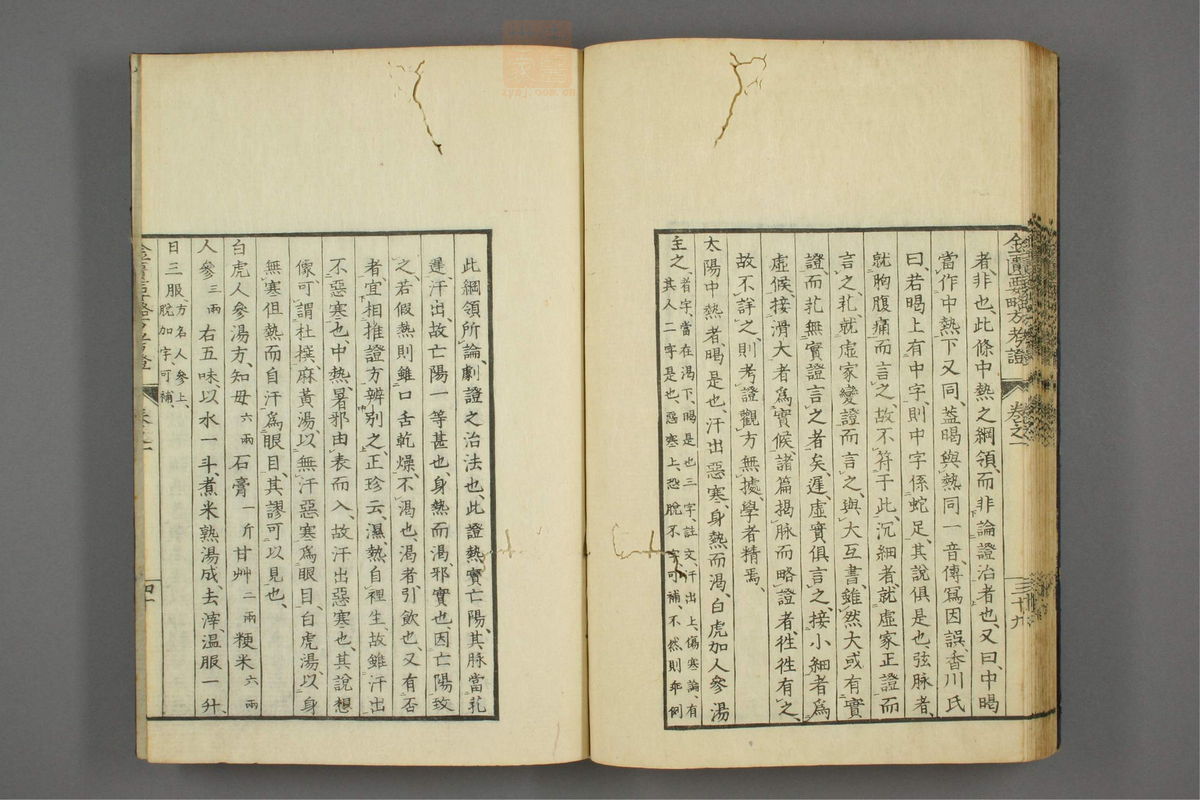 金匱要略方考證
卷之
三十九
者、非也、此條中熱之綱領、而非論證治者也、又曰、中暍
當作中熱、下又同、蓋暍與熱同一音、傳寫因誤、香川氏
曰、若暍上有中字、則中字係蛇足、其說俱是也、弦脉者、
就胸腹痛而言之、故不符于此、沉細者、就虛家正證而
言之、芤、就虛家變證而言之、與大互書、雖然大或有實
證而芤無實證言之者矣、遲、虛實俱言之、接小細者爲
虛候、接滑大者爲實候、諸篇揭脉而略證者、往往有之、
故不詳之、則考證觀方無據、學者精焉、
太陽中熱者、暍是也、汗出惡寒、身熱而渴、白虎加人參湯
主之、者字、當在渴下、暍是也三字、註文、汗出上、傷寒論、有
其人二字是也、惡寒上、恐脫不字、可補、不然則乖例
此綱領所論、劇證之治法也、此證熱實亡陽、其脉當芤
遲、汗出、故亡陽一等甚也、身熱而渴、邪實也、因亡陽致
之、若假熱則雖口舌乾燥、不渴也、渴者引飲也、又有否
者、宜相推證方辨別之、正珍云、濕熱自裡生、故雖汗出
不惡寒也、中熱、暑邪由表而入、故汗出惡寒也、其說想
像可謂杜撰、麻黃湯以無汗惡寒爲眼目、白虎湯、以身
無寒但熱而自汗爲眼目、其謬可以見也、
白虎人參湯方、知母六兩石膏一斤甘艸二兩粳米六兩
人參三兩右五味、以水一斗、煮米熟湯成、去滓溫服一升、
日三服、方名人參上、
脫加字、可補、